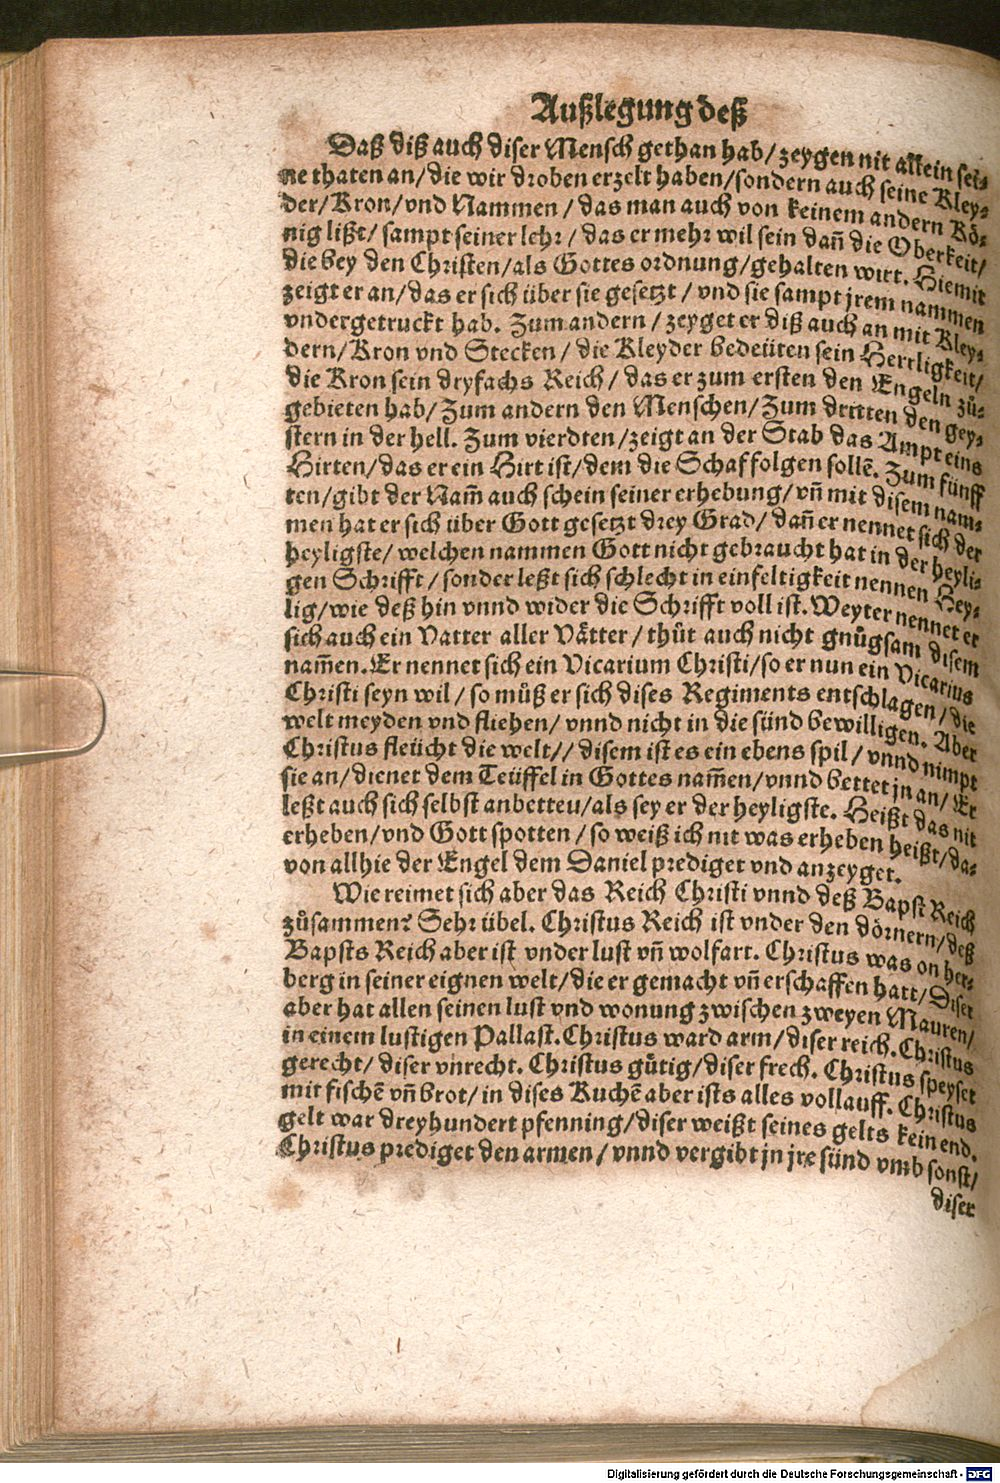 Außlegung deß
Daß diß auch diser Mensch gethan hab/ zeygen nit allein sei-
ne thaten an/ die wir droben erzelt haben/ sondern auch seine Kley-
der/ Kron/ vnd Nammen / das man auch von keinem andern Kö-
nig lißt/ sampt seiner lehr / das er mehr wil sein dañ die Oberkeit/
die bey den Christen/ als Gottes ordnung/ gehalten wirt. Hiemit
zeigt er an/ das er sich über sie gesetzt / vnd sie sampt jrem nammen
vndergetruckt hab. Zum andern / zeyget er diß auch an mit Kley-
dern/ Kron vnd Stecken / die Kleyder bedeüten sein Herrligkeit/
die Kron sein dryfachs Reich / das er zum ersten den Engeln zů-
gebieten hab/ Zum andern den Menschen/ Zum dritten den gey-
stern in der hell. Zum vierdten/ zeigt an der Stab das Ampt eins
Hirten/ das er ein Hirt ist/ dem die Schaf folgen sollẽ. Zum fünff
ten/ gibt der Nam̃ auch schein seiner erhebung/ vñ mit disem nam-
men hat er sich über Gott gesetzt drey Grad/ dañ er nennet sich der
heyligste/ welchen nammen Gott nicht gebraucht hat in der heyli-
gen Schrifft / sonder leßt sich schlecht in einfeltigkeit nennen Hey-
lig/ wie deß hin vnnd wider die Schrifft voll ist. Weyter nennet er
sich auch ein Vatter aller Vätter / thůt auch nicht gnůgsam disem
nam̃en. Er nennet sich ein Vicarium Christi/ so er nun ein Vicarius
Christi seyn wil / so můß er sich dises Regiments entschlagen/ die
welt meyden vnd fliehen/ vnnd nicht in die sünd bewilligen. Aber
Christus fleücht die welt// disem ist es ein ebens spil / vnnd nimpt
sie an/ dienet dem Teüffel in Gottes nam̃en/ vnnd bettet jn an/ Er
leßt auch sich selbst anbetteu/ als sey er der heyligste. Heißt das nit
erheben/ vnd Gott spotten / so weiß ich nit was erheben heißt/ da-
von allhie der Engel dem Daniel prediget vnd anzeyget.
Wie reimet sich aber das Reich Christi vnnd deß Bapst Reich
zůsammen? Sehr übel. Christus Reich ist vnder den dörnern/ deß
Bapsts Reich aber ist vnder lust vñ wolfart. Christus was on her-
berg in seiner eignen welt/ die er gemacht vñ erschaffen hatt/ Diser
aber hat allen seinen lust vnd wonung zwischen zweyen Mauren/
in einem lustigen Pallast. Christus ward arm/ diser reich. Christus
gerecht/ diser vnrecht. Christus gůtig/ diser frech. Christus speyset
mit fischẽ vñ brot/ in dises Kuchẽ aber ists alles vollauff. Christus
gelt war dreyhundert pfenning/ diser weißt seines gelts kein end.
Christus prediget den armen/ vnnd vergibt jn jre sünd vmb sonst/
diser
Digitalisierung gefördert durch die Deutsche Forschungsgemeinschaft - DFG